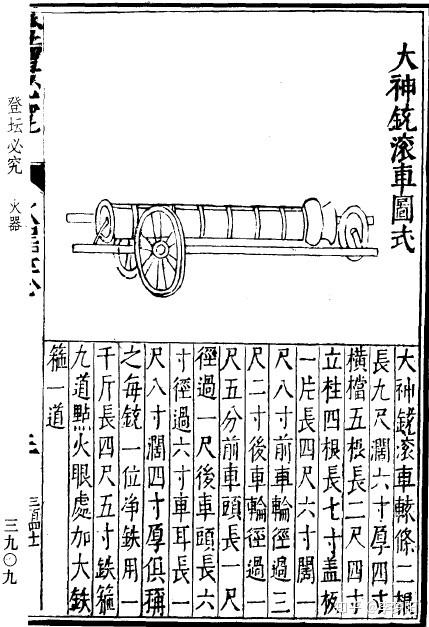 大神銃滾車圖式
大神銃滾車轅條二根
長九尺濶六寸厚四寸
橫檔五根長二尺四寸
立柱四根長七寸盖板
一片長四尺六寸闊一
尺八寸前車輪徑過三
尺二寸後車輪徑過一
尺五分前車頭長一尺
徑過一尺後車頭長六
寸徑過六寸車耳長一
尺八寸濶四寸厚俱稱
之每銃一位净鉄用一
千斤長四尺五寸鉄箍
九道點火眼處加大鉄
箍一道
登坛必究 火器
三九〇九
知乎